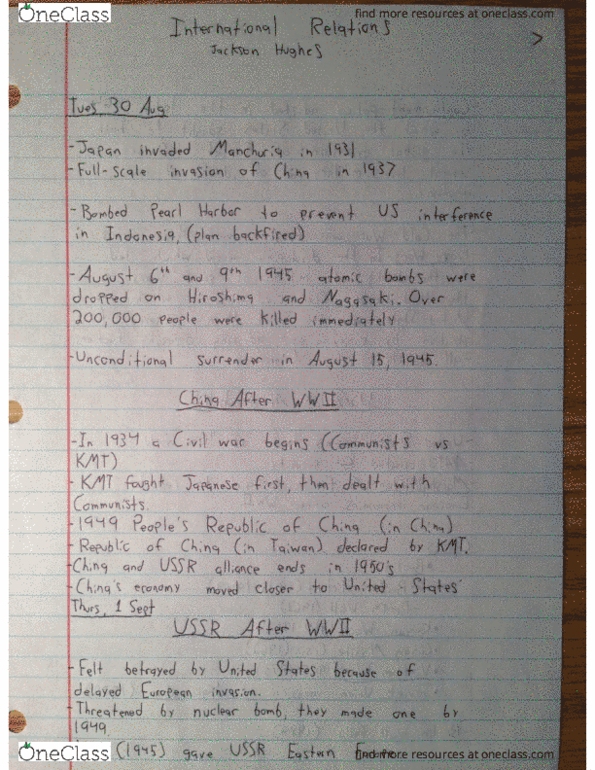 OneClass
find more resources at oneclass.com
International Relations
Jackson Hughes
>
Tues, 30 Aug
- Japan invaded Manchuria in 1931
- Full-scale invasion of China in 1937
- Bombed Pearl Harbor to prevent US interference
in Indonesia, (plan backfired)
- August 6th and 9th 1945 atomic bombs were
dropped on Hiroshima and Nagasaki. Over
200,000 people were killed immediately
- Unconditional surrender in August 15, 1945.
China After WWII
- In 1934 a Civil war begins (Communists vs
KMT)
- KMT fought Japanese first, then dealt with
Communists.
- 1949 People's Republic of China (in China)
- Republic of China (in Taiwan) declared by KMT.
- China and USSR alliance ends in 1950's
- China's economy moved closer to United States'
Thurs, 1 Sept
USSR After WWII
- Felt betrayed by United States because of
delayed European invasion.
- Threatened by nuclear bomb, they made one by
1949.
(1945) gave USSR Eastern
OneClass
find more resources at oneclass.com